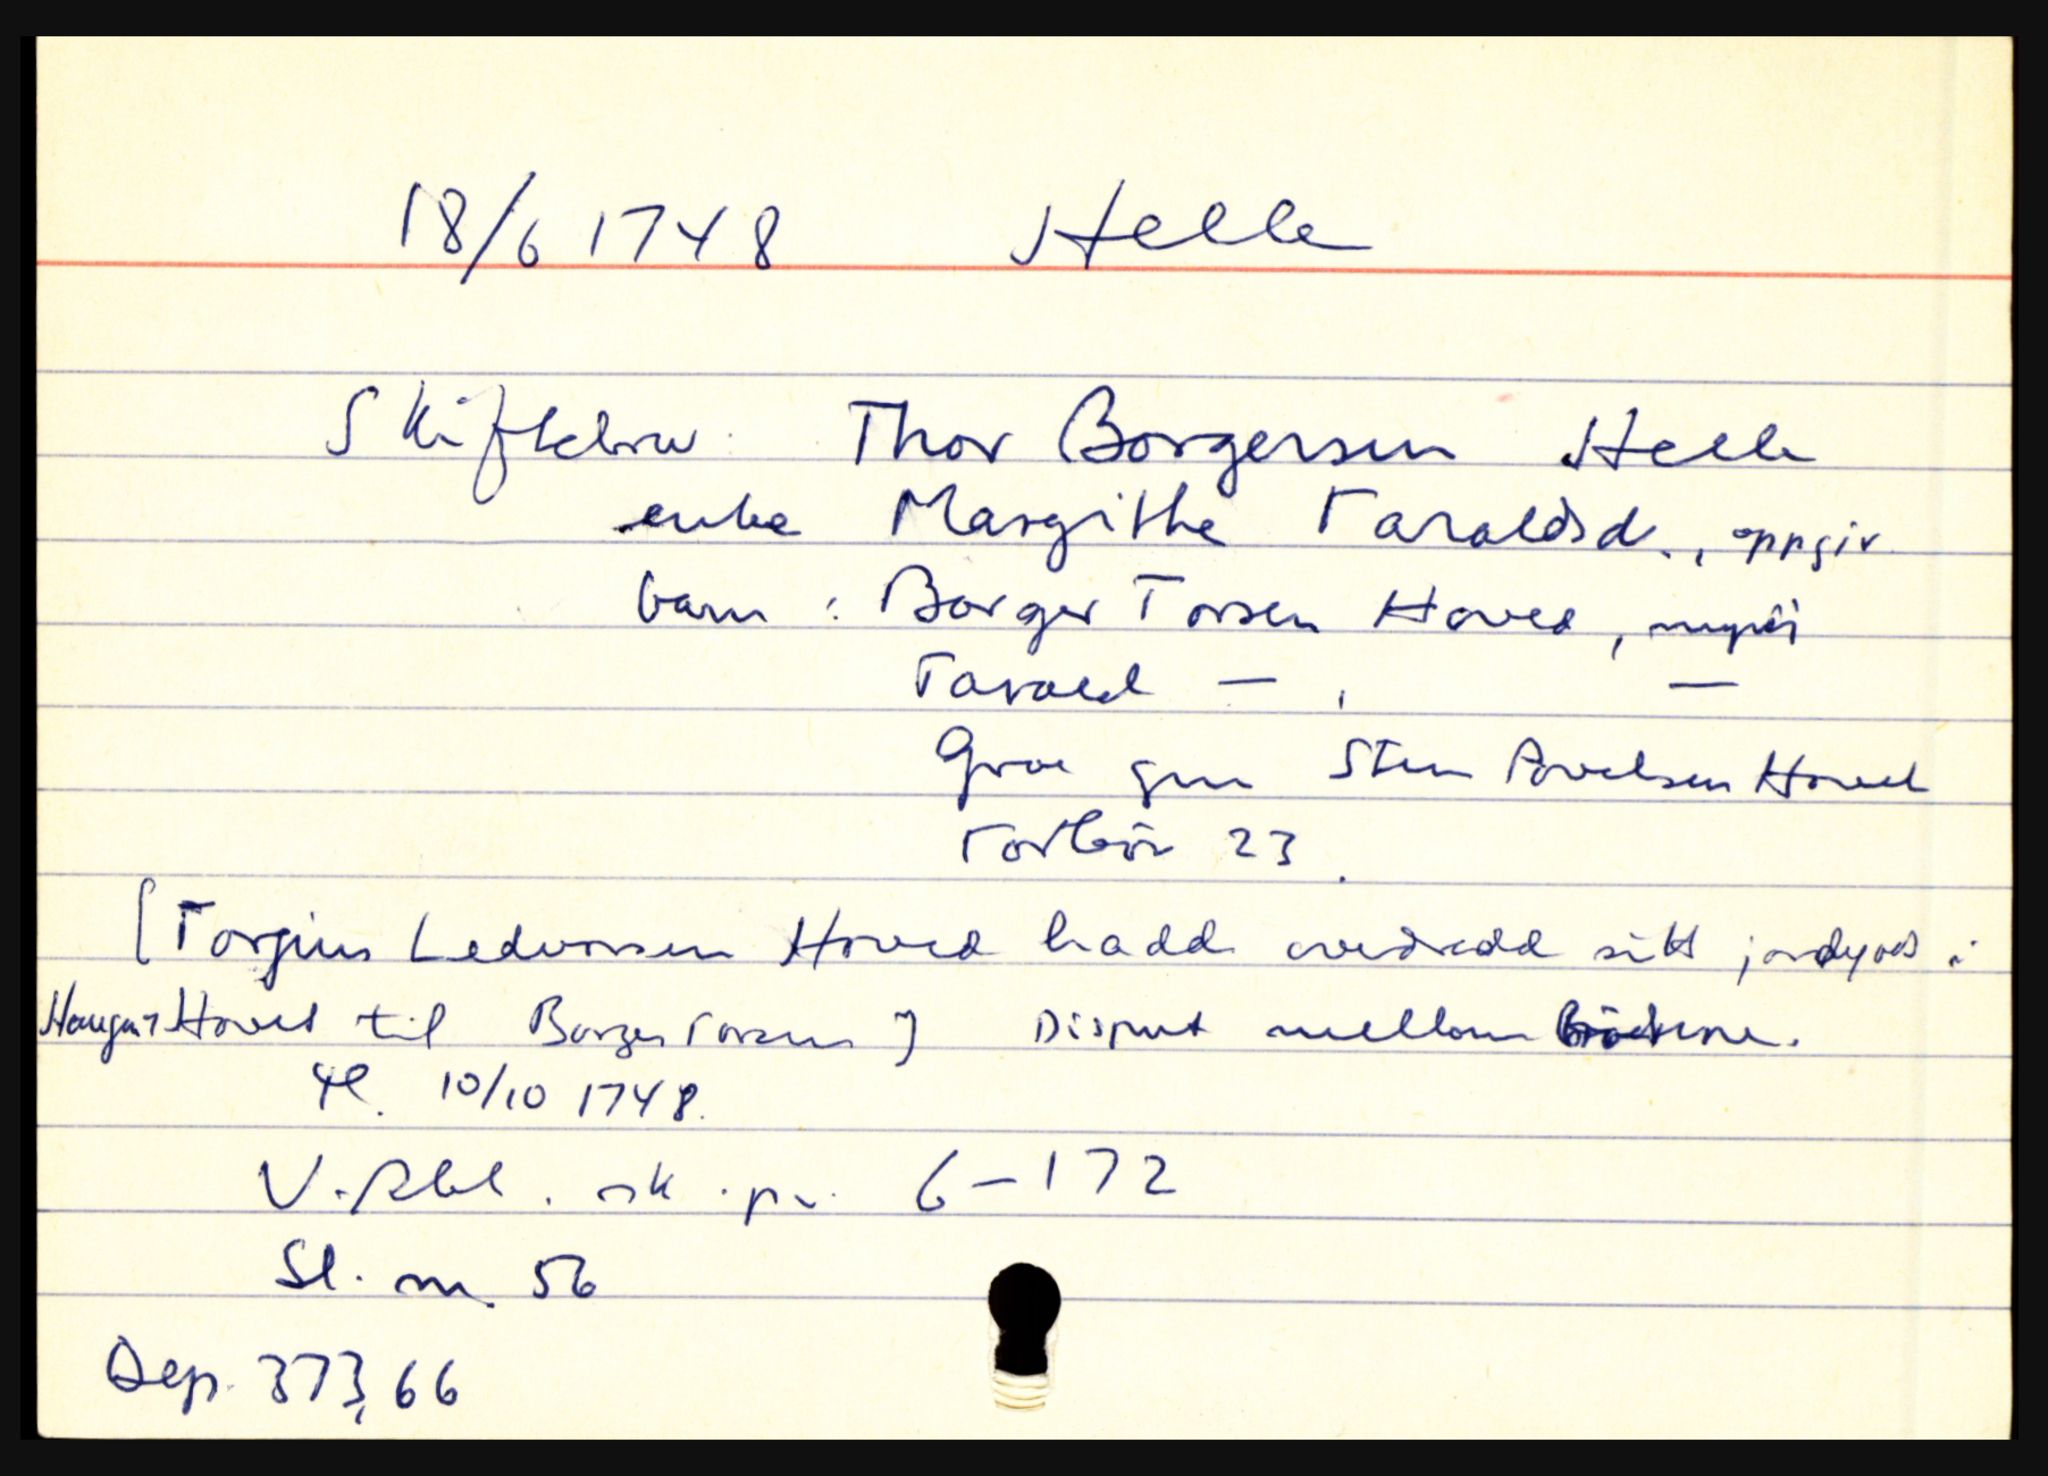 18/6 1748 Helle
Skiftebrev. Thor Borgersen Helle
enke Margithe Taraldsd., oppgir
barn: Borger Torsen Hoved, myndi
Tarald — , —
Groe gm Sten Povelsen Hoved
Torbiør 23.
[Torgius Ledvorsen Hoved hadde overdradd sitt jordgods i
Haugen, Hoved til Borger Torsen] Disput mellom brødrene.
10/10 1748.
V. Rbl. sk. pr. 6-172
Sl. m. 56
Dep. 373, 66